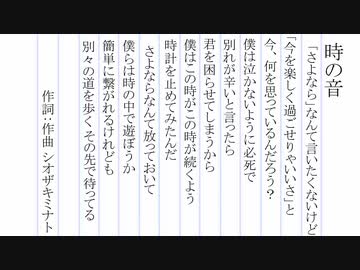 時の音
「さよなら」なんて言いたくないけど
「今を楽しく過ごせりゃいいさ」と
今、何を思っているんだろう？
僕は泣かないように必死で
別れが辛いと言ったら
君を困らせてしまうから
僕はこの時がこの時が続くよう
時計を止めてみたんだ
さよならなんて放っておいて
僕らは時の中で遊ぼうか
簡単に繋がれるけれども
別々の道を歩く その先で待ってる
作詞：作曲 シオザキミナト